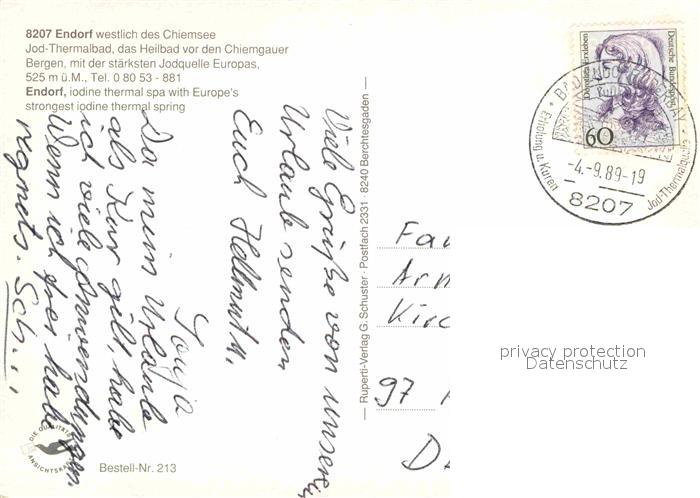 8207 Endorf westlich des Chiemsee
Jod-Thermalbad, das Heilbad vor den Chiemgauer
Bergen, mit der stärksten Jodquelle Europas,
525 m ü.M., Tel. 0 80 53 - 881
Endorf, iodine thermal spa with Europe's
strongest iodine thermal spring
Viele Grüße von unserem
Urlaub senden
Euch Hellmut u.
Sonja
Da mein Urlaub
als Kur gilt, habe
ich viele Anwendungen.
Wenn ich frei habe
regnets. Sch...
Ruperti-Verlag G. Schuster · Postfach 2331 · 8240 Berchtesgaden
Deutsche Bundespost
Dorothea Erxleben
60
BAD
Erholung u. Kuren
-4.-9.89-19
Jod-Thermalquelle
8207
Fa
Ar
Kirc
97
D
privacy protection
Datenschutz
DIE QUALITÄTS
ANSICHTSKARTE
Bestell-Nr. 213